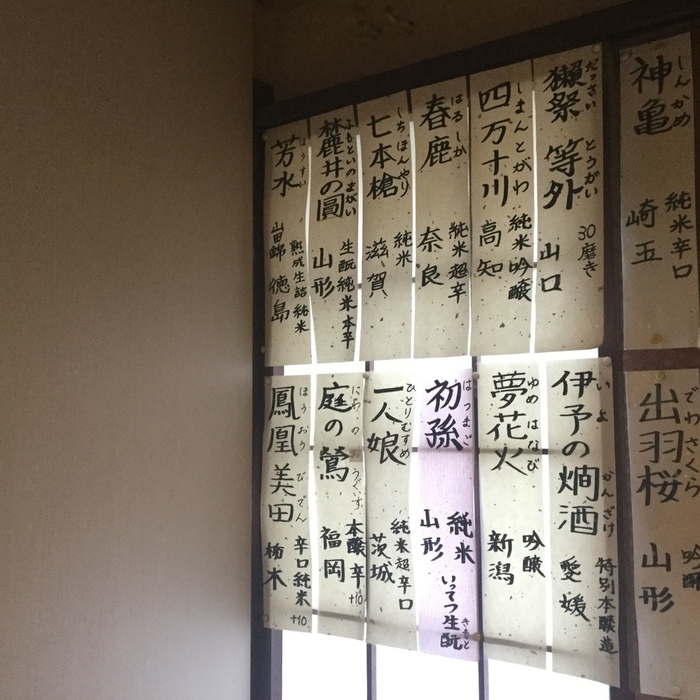 神亀 しんかめ
純米辛口
崎玉
獺祭 等外 だっさい とうがい
30磨き
山口
四万十川 しまんとがわ
純米吟醸
高知
春鹿 はるしか
純米超辛
奈良
七本槍 しちほんやり
純米
滋賀
麓井の圓 ふもといのまがい
生酛純米本辛
山形
芳水 ほうすい
山田錦 熟成生詰純米
徳島
出羽桜 でわさくら
吟醸
山形
伊予の燗酒 いよ かんざけ
特別本醸造
愛媛
夢花火 ゆめはなび
吟醸
新潟
初孫 はつまご
純米 いってつ生酛 きもと
山形
一人娘 ひとりむすめ
純米超辛口
茨城
庭の鶯 にわのうぐいす
本醸辛+10
福岡
鳳凰美田 ほうおうびでん
辛口純米+10
栃木